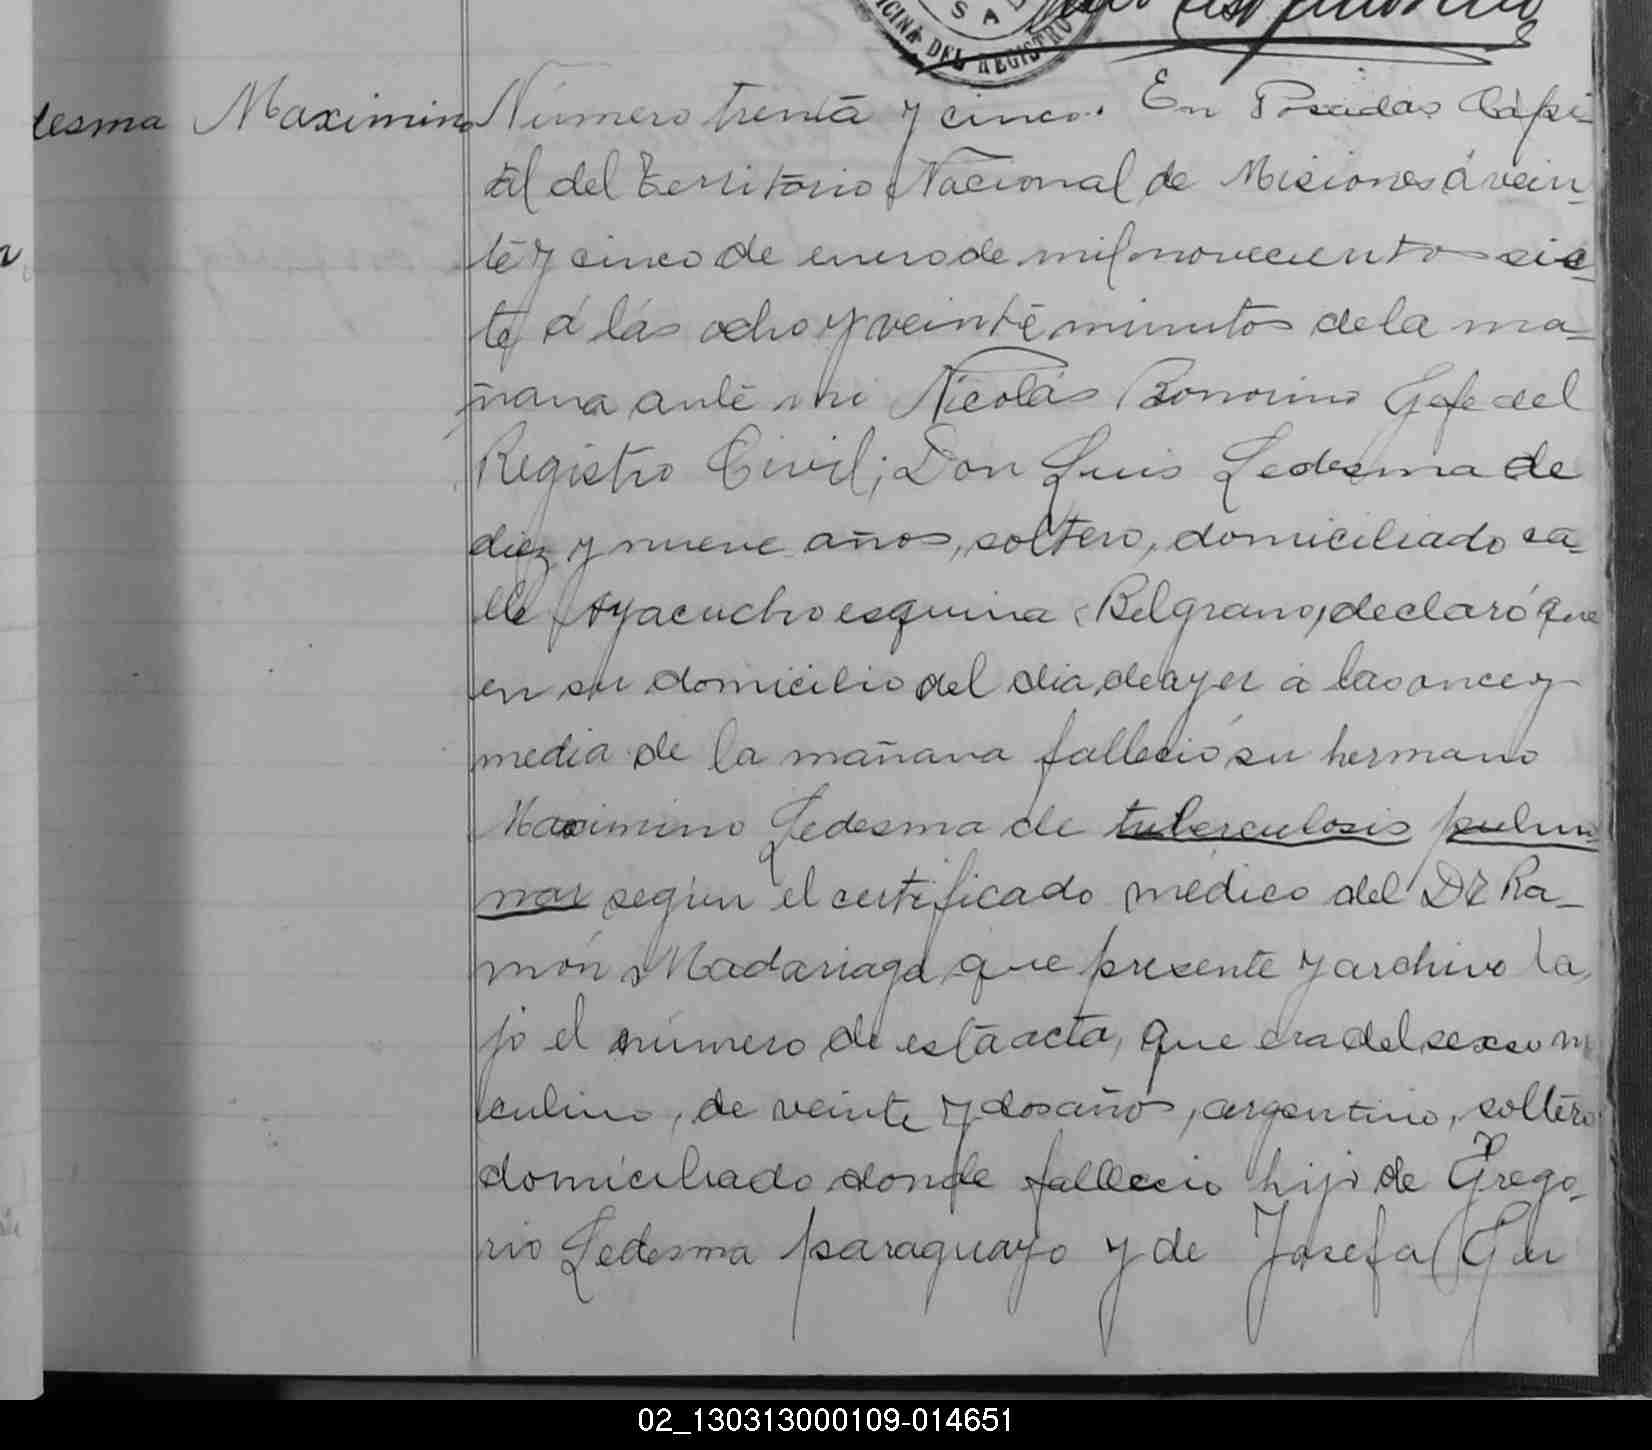 S A
OFICINA DEL REGISTRO
Ledesma Maximino
Número trenta y cinco. En Posadas Capi-
tal del Territorio Nacional de Misiones á vein-
te y cinco de enero de mil novecientos sie-
te á lás ocho y veinte minutos de la ma-
ñana ante mi Nicolás Bonorino Gefe del
Registro Civil; Don Luis Ledesma de
diez y nueve años, soltero, domiciliado ca-
lle Ayacucho esquina Belgrano, declaró que
en su domicilio del dia de ayer á las once y
media de la mañana falleció su hermano
Maximino Ledesma de tuberculosis pulmo
nar según el certificado médico del Dr Ra-
món Madariaga que presente y archivo ba
jo el número de esta acta, que era del sexso m
culino, de veinte y dos años, argentino, soltero
domiciliado donde fallecio hijo de Grego-
rio Ledesma paraguayo y de Josefa
02_130313000109-014651